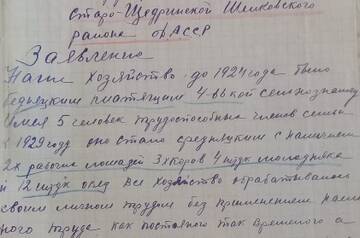 Старо-Щедринской Шелковского
района ДАССР
Заявление
Наше хозяйство до 1924 года было
бедняцким платящим 4-вкой сельхозналог
Имея 5 человек трудоспособных членов семьи
к 1929 году оно стало средняцким с наличием
2х рабочих лошадей 3х коров 4 штук молодняка
и 12 штук овец Все хозяйство обрабатывалось
своим личным трудом без применения наем
ного труда как постоянного так временного а